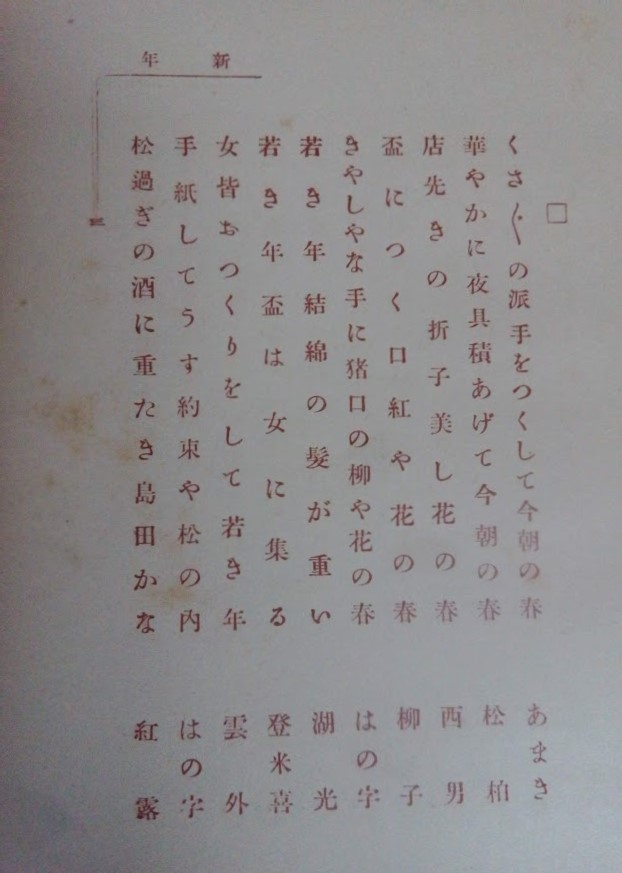 新年
□
くさ〴〵の派手をつくして今朝の春 あまき
華やかに夜具積あげて今朝の春 松柏
店先きの折子美し花の春 西男
盃につく口紅や花の春 柳子
きやしやな手に猪口の柳や花の春 はの字
若き年結綿の髪が重い 湖光
若き年盃は女に集る 登米喜
女皆おつくりをして若き年 雲外
手紙してうす約束や松の内 はの字
松過ぎの酒に重たき島田かな 紅露
三